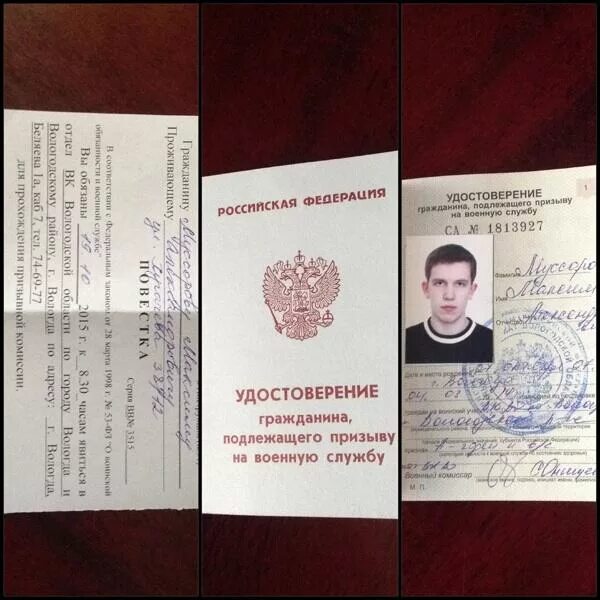 Серия ВВ№3515
ПОВЕСТКА
Гражданину Муссорову Максиму
Александровичу
Проживающему
В соответствии с Федеральным законом от 28 марта 1998 г. № 53-ФЗ "О воинской
обязанности и военной службе"
Вы обязаны 19.10 2015 г. к 8.30 часам явиться в
отдел ВК Вологодской области по городу Вологда и
Вологодскому району, г. Вологда по адресу: г. Вологда,
Беляева 1а, каб 7, тел. 74-69-77
для прохождения призывной комиссии.
РОССИЙСКАЯ ФЕДЕРАЦИЯ
УДОСТОВЕРЕНИЕ
гражданина,
подлежащего призыву
на военную службу
1
УДОСТОВЕРЕНИЕ
гражданина, подлежащего призыву
на военную службу
СА № 1813927
Фамилия Муссоро
Имя Максим
Отчество Александ
Дата и место рождения
г. Вологда
на воинский учет
Военный комиссар
М. П.